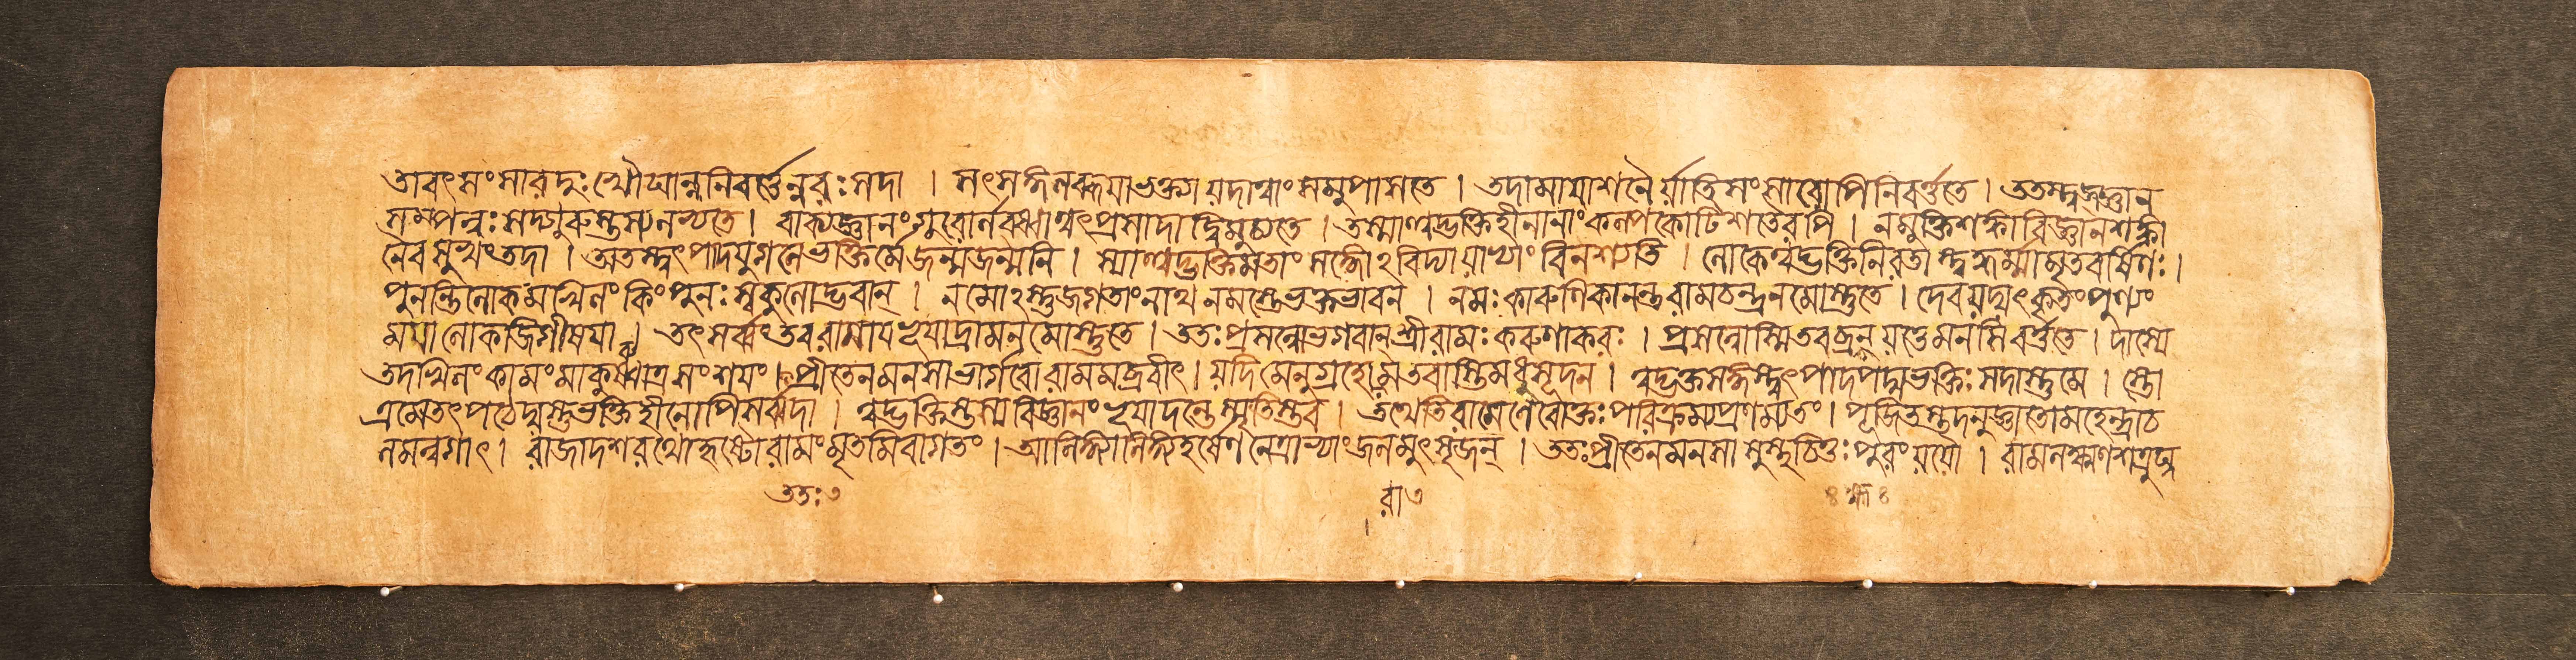 তাবৎসংসারদুঃখৌঘান্ননিবর্ত্তেন্নরঃসদা । সৎসঙ্গলব্ধয়াভক্ত্যাযদাত্বাংসমুপাসতে । তদামায়াশনৈর্যাতিসংসারোপিনিবর্ত্ততে । ততস্ত্বজ্জ্ঞান
সম্পন্নঃসদ্গুরুস্তস্যলভ্যতে । বাক্যজ্ঞানংগুরোর্লব্ধ্বাত্বৎপ্রসাদাদ্বিমুচ্যতে । তস্মাত্ত্বদ্ভক্তিহীনানাংকল্পকোটিশতৈরপি । নমুক্তিশঙ্কাবিজ্ঞানশঙ্কা
নৈবসুখংতদা । অতস্ত্বৎপাদযুগলেভক্তির্মেজন্মজন্মনি । স্যাত্ত্বদ্ভক্তিমতাংসঙ্গোঽবিদ্যাযাভ্যাংবিনশ্যতি । লোকেত্বদ্ভক্তিনিরতাস্ত্বদ্ধর্ম্মামৃতবর্ষিণঃ ।
পুনন্তিলোকমখিলংকিংপুনঃস্বকুলোদ্ভবান্ । নমোঽস্তুজগতাংনাথনমস্তেভক্তভাবন । নমঃকারুণিকানন্তরামচন্দ্রনমোস্তুতে । দেবযদ্যৎকৃতংপুণ্যং
ময়ালোকজিগীষয়া । তৎসর্ব্বংতববাণায়ভূয়াদ্রামনমোস্তুতে । ততঃপ্রসন্নোভগবান্শ্রীরামঃকরুণাকরঃ । প্রসন্নোস্মিতবব্রহ্মন্যত্তেমনসিবর্ত্ততে । দাস্যে
তদখিলংকামংমাকুরুষ্বাত্রসংশয়ং । প্রীতেনমনসাভার্গবোরামমব্রবীৎ । যদিমেনুগ্রহোরামতবাস্তিমধুসূদন । ত্বদ্ভক্তসঙ্গস্ত্বৎপাদপদ্মভক্তিঃসদাস্তুমে । স্তো
ত্রমেতৎপঠেদ্যস্তুভক্তিহীনোপিসর্ব্বদা । ত্বদ্ভক্তিস্তস্যবিজ্ঞানংভূয়াদন্তেস্মৃতিস্তব । তথেতিরামেণৈবোক্তঃপরিক্রম্যপ্রণম্যতং । পূজিতস্তদনুজ্ঞাতোমহেন্দ্রাচ
লমন্বগাৎ । রাজাদশরথোহৃষ্টোরামংমৃতমিবাগতং । আলিঙ্গ্যালিঙ্গ্যহর্ষেণনেত্রাভ্যাংজলমুৎসৃজন্ । ততঃপ্রীতেনমনসাসুস্থচিত্তঃপুরংযযৌ । রামলক্ষ্মণশত্রুঘ্ন
ততঃ৩ রা৩